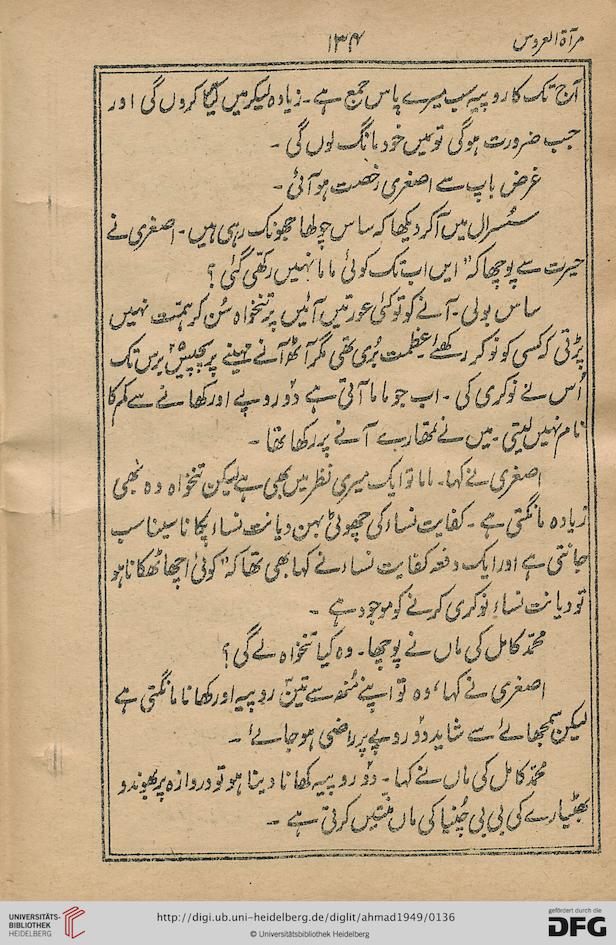 مرآۃ العروس
۱۳۴
آج تک کا روپیہ سب میرے پاس جمع ہے۔ زیادہ لیکر میں کیا کروں گی اور
جب ضرورت ہوگی تو میں خود مانگ لوں گی ۔
غرض باپ سے اصغری رخصت ہو آئی ۔
سسرال میں آکر دیکھا کہ ساس چولھا جھونک رہی ہیں ۔ اصغری نے
حیرت سے پوچھا کہ" ایں اب تک کوئی ماما نہیں رکھی گئی ؟
ساس بولی ۔ آنے کو تو کئی عورتیں آئیں پر تنخواہ سُن کر ہمت نہیں
پڑتی کہ کسی کو نوکر رکھئے عظمت بُری تھی مگر آٹھ آنے مہینے پر پچیس برس تک
اُس نے نوکری کی ۔ اب جو ماما آتی ہے دو روپے اور کھانے سے کم کا
نام نہیں لیتی ۔ میں نے تمھارے آنے پر رکھا تھا ۔
اصغری نے کہا ۔ ماما تو ایک میری نظر میں بھی ہے لیکن تنخواہ وہ بھی
زیادہ مانگتی ہے ۔ کفایت نساء کی چھوٹی بہن دیانت نساء پکانا سینا سب
جانتی ہے اور ایک دفعہ کفایت نساء نے کہا بھی تھا کہ" کوئی اچھا ٹھکانا ہو
تو دیانت نساء نوکری کرنے کو موجود ہے ۔
محمد کامل کی ماں نے پوچھا ۔ وہ کیا تنخواہ لے گی ؟
اصغری نے کہا، وہ تو اپنے مُنھ سے تین روپیہ اور کھانا مانگتی ہے
لیکن سمجھانے سے شاید دو روپے پر راضی ہو جائے ۔
محمد کامل کی ماں نے کہا ۔ دو روپیہ کھانا دینا ہو تو دروازہ پر بھوندو
بھٹیارے کی بی بی چُنیا کی ماں منتیں کرتی ہے ۔
UNIVERSITÄTS-
BIBLIOTHEK
HEIDELBERG
http://digi.ub.uni-heidelberg.de/diglit/ahmad1949/0136
© Universitätsbibliothek Heidelberg
gefördert durch die
DFG